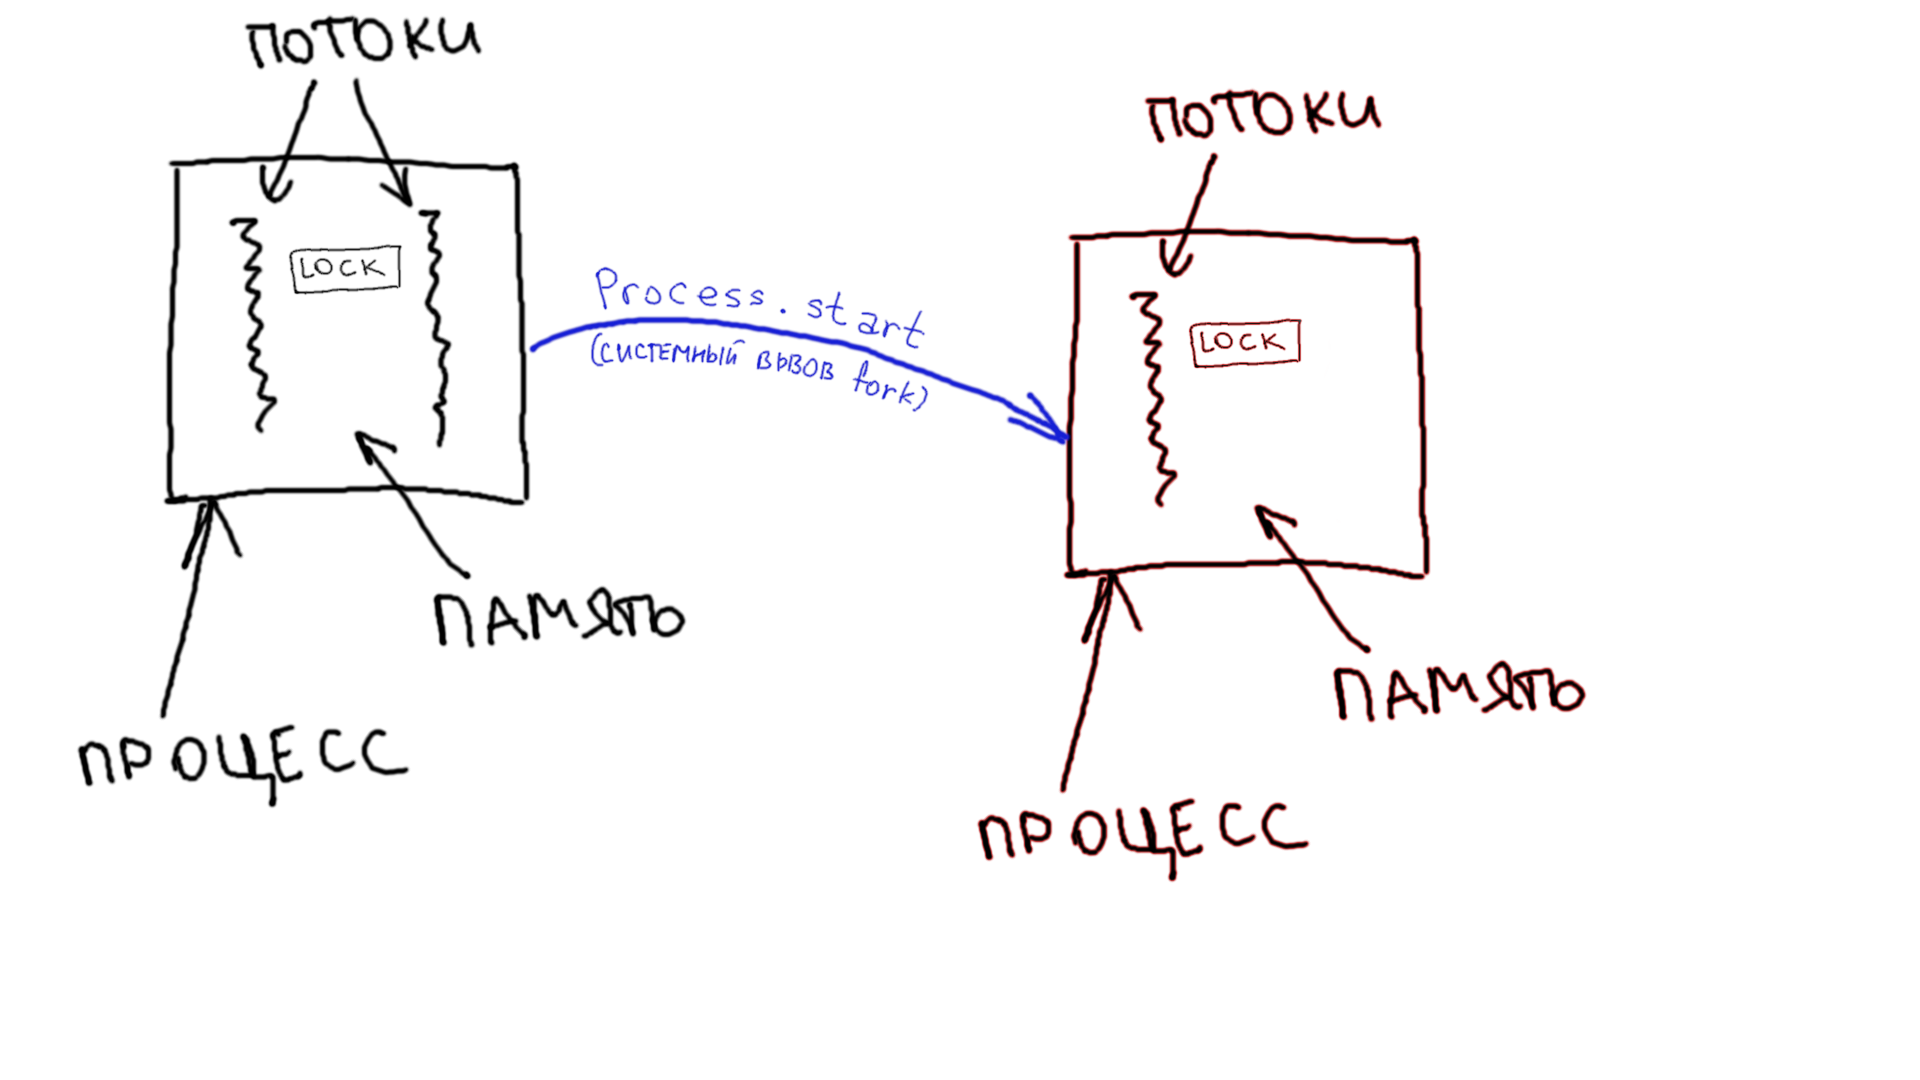 ПОТОКИ
LOCK
ПАМЯТЬ
ПРОЦЕСС
Process.start
(СИСТЕМНЫЙ ВЫЗОВ fork)
ПОТОКИ
LOCK
ПАМЯТЬ
ПРОЦЕСС